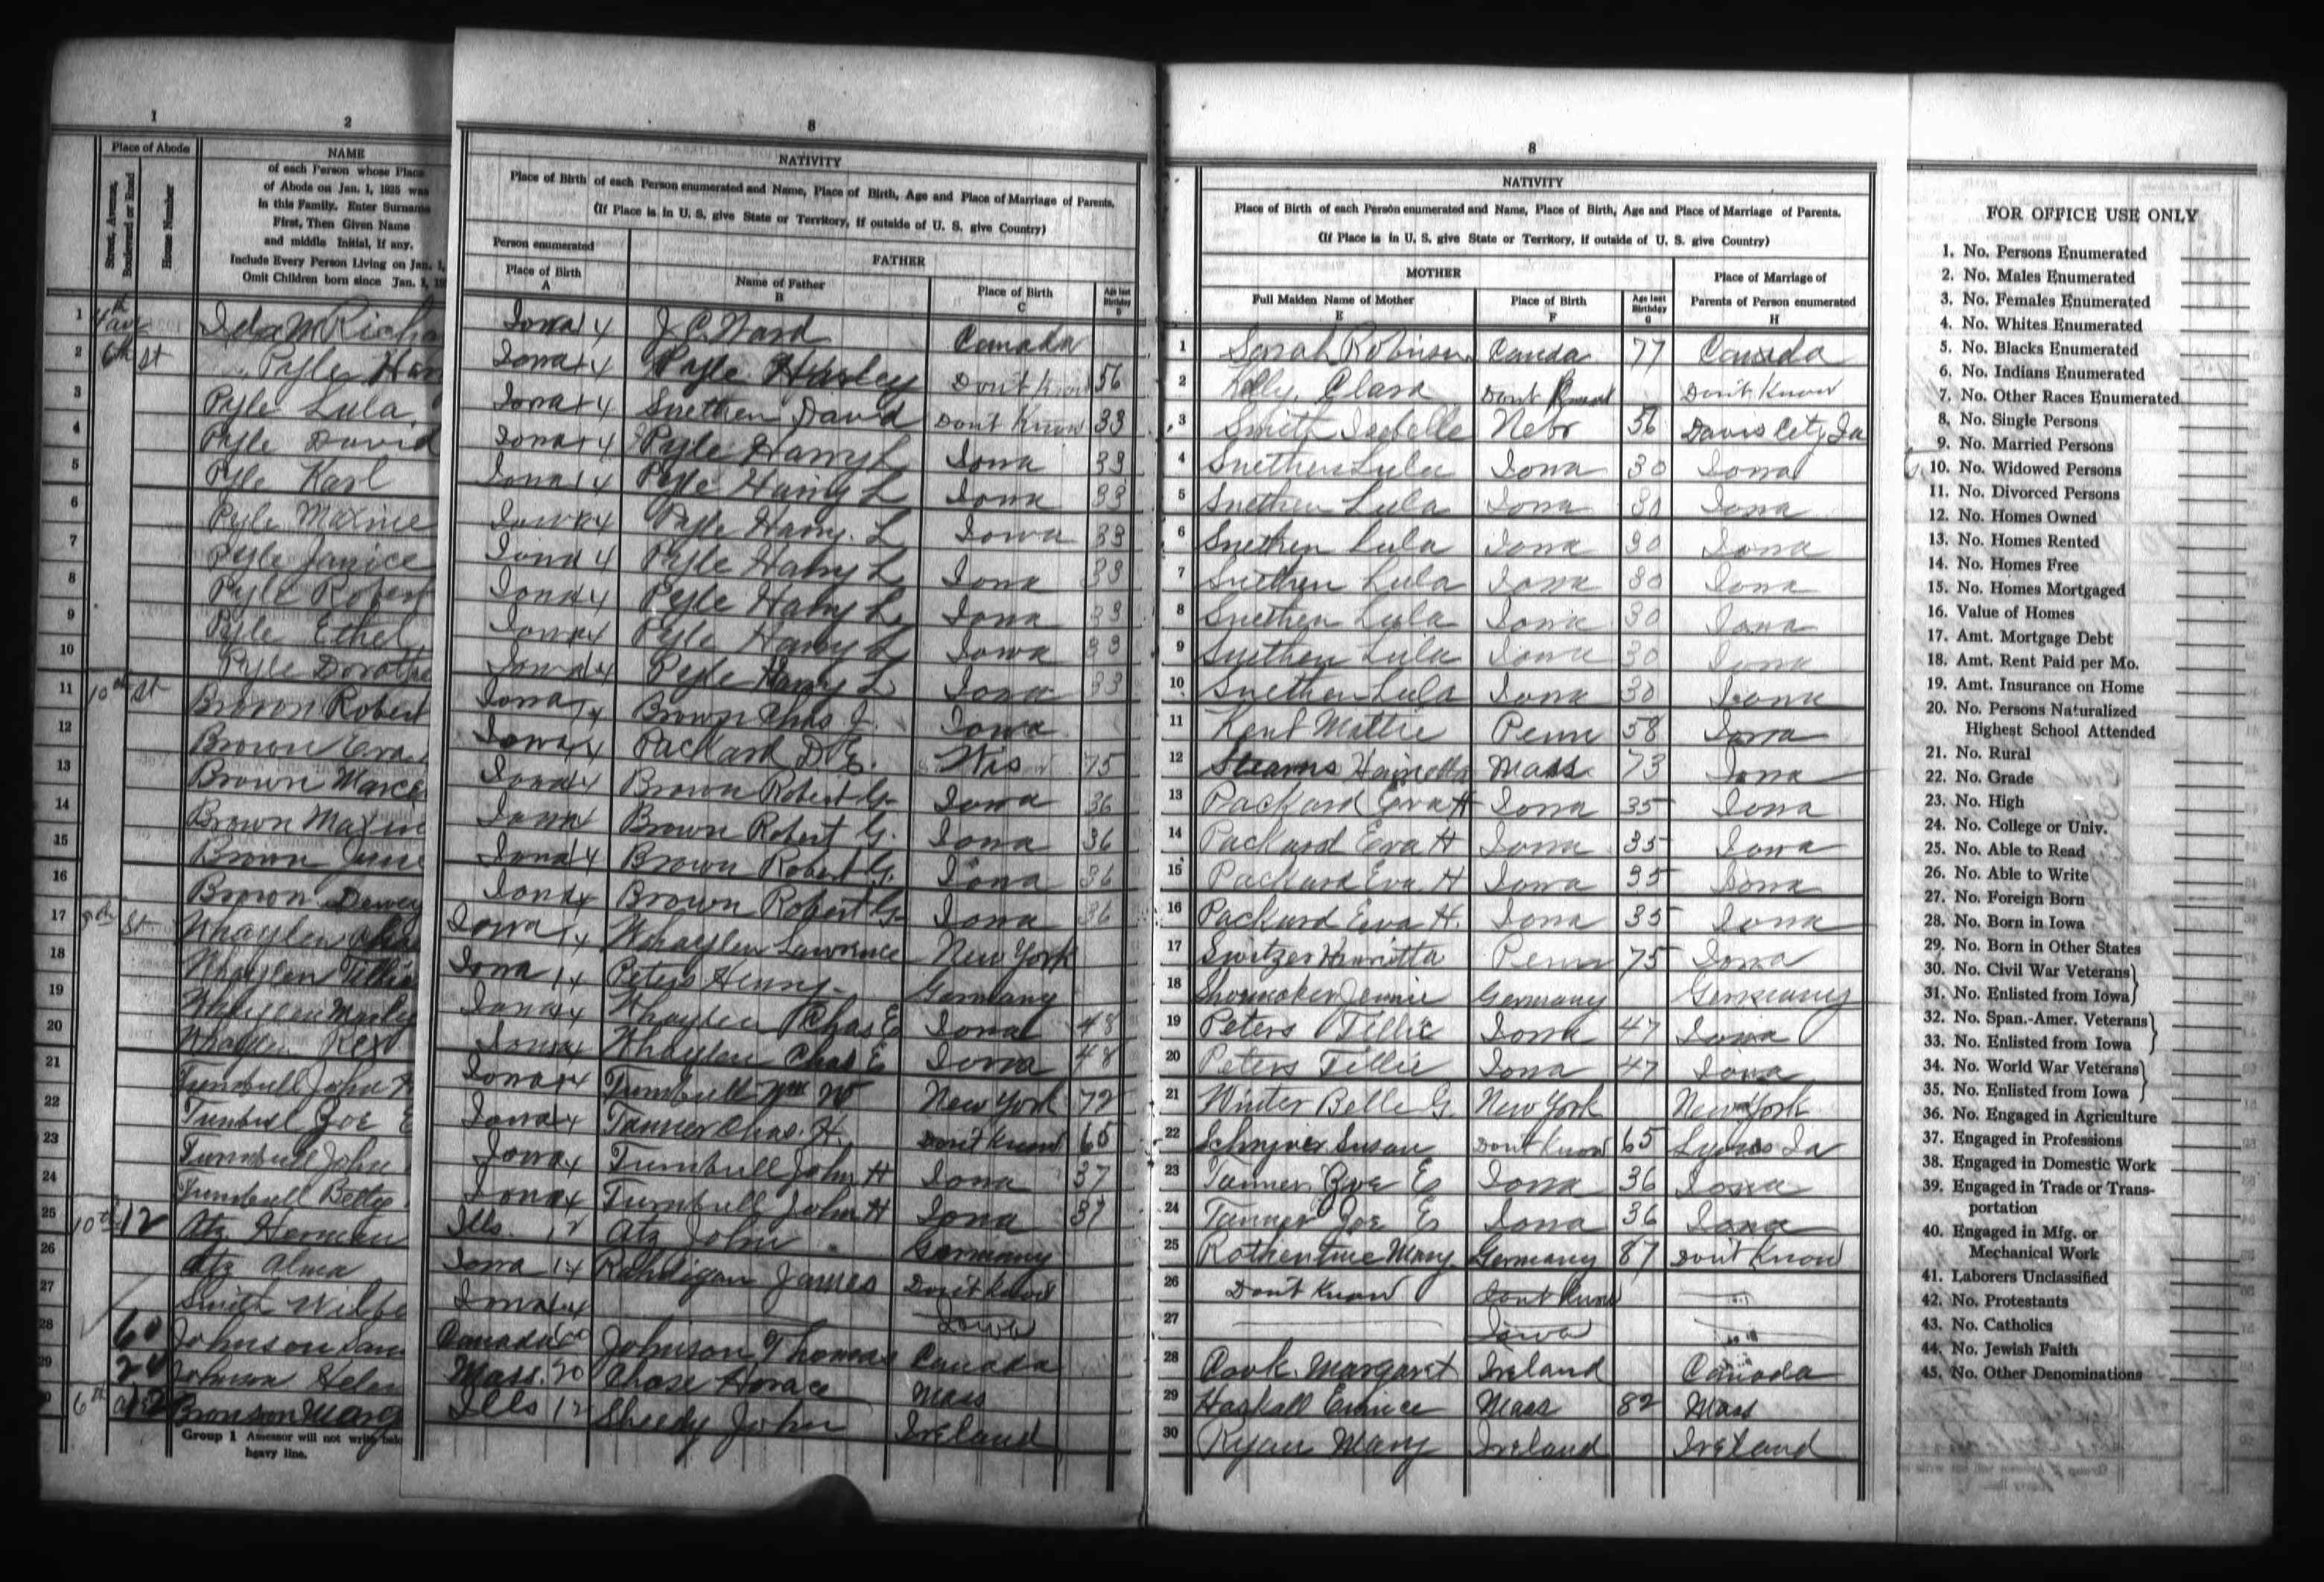 1 2
Place of Abode
Street, Avenue, Boulevard or Road
House Number
NAME
of each Person whose Place
of Abode on Jan. 1, 1925 was
in this Family. Enter Surname
First, Then Given Name
and middle Initial, if any.
Include Every Person Living on Jan. 1,
Omit Children born since Jan. 1, 19
1 4th ave Ida M Richa
2 6th st Pyle Har
3 Pyle Lula
4 Pyle David
5 Pyle Karl
6 Pyle Maxine
7 Pyle Janice
8 Pyle Robert
9 Pyle Ethel
10 Pyle Dorothe
11 10th st Brown Robert
12 Brown Eva
13 Brown Marce
14 Brown Maxine
15 Brown June
16 Brown Dewey
17 8th st Whaylen Chas
18 Whaylen Tillie
19 Whaylen Marley
20 Whaylen Rex
21 Turnbull John H
22 Turnbull Zoe E
23 Turnbull John
24 Turnbull Betty
25 10th 12 Atz Herman
26 Atz Alma
27 Smith Wilbe
28 60 Johnson Sam
29 20 Johnson Helen
6th ave 12 Bronson Marg
Group 1 Assessor will not write belo
heavy line.
8
NATIVITY
Place of Birth of each Person enumerated and Name, Place of Birth, Age and Place of Marriage of Parents.
(If Place is in U. S. give State or Territory, if outside of U. S. give Country)
Person enumerated
FATHER
Place of Birth Name of Father Place of Birth Age last Birthday
A B C D
Iowa 14 J. C. Ward Canada
Iowa 14 Pyle Harley Don't Know 56
Iowa 14 Snethen David Don't Know 33
Iowa 14 Pyle Harry L Iowa 33
Iowa 14 Pyle Harry L Iowa 33
Iowa 14 Pyle Harry. L Iowa 33
Iowa 14 Pyle Harry L Iowa 33
Iowa 14 Pyle Harry L Iowa 33
Iowa 14 Pyle Harry L Iowa 33
Iowa 14 Pyle Harry L Iowa 33
Iowa 14 Brown Chas. J. Iowa
Iowa 14 Packard D. E. Wis 75
Iowa 14 Brown Robert G. Iowa 36
Iowa 14 Brown Robert G. Iowa 36
Iowa 14 Brown Robert G. Iowa 36
Iowa 14 Brown Robert G. Iowa 36
Iowa 14 Whaylen Lawrence New York
Iowa 14 Peters Henry Germany
Iowa 14 Whaylen Chas E Iowa 48
Iowa 14 Whaylen Chas E Iowa 48
Iowa 14 Turnbull Wm W New York 72
Iowa 14 Tanner Chas. H. Don't Know 65
Iowa 14 Turnbull John H Iowa 37
Iowa 14 Turnbull John H Iowa 37
Ills. 12 Atz John Germany
Iowa 14 James Don't Know
Iowa 14 Iowa
Canada 60 Johnson Thomas Canada
Mass. 20 Chase Horace Mass
Ills 12 Sheedy John Ireland
8
NATIVITY
Place of Birth of each Person enumerated and Name, Place of Birth, Age and Place of Marriage of Parents.
(If Place is in U. S. give State or Territory, if outside of U. S. give Country)
MOTHER
Full Maiden Name of Mother Place of Birth Age last Birthday Place of Marriage of Parents of Person enumerated
E F G H
1 Sarah Robinson Canada 77 Canada
2 Kelly, Clara Don't Know Don't Know
3 Smith Isabelle Nebr 56 Davis City Ia
4 Snethen Lula Iowa 30 Iowa
5 Snethen Lula Iowa 30 Iowa
6 Snethen Lula Iowa 30 Iowa
7 Snethen Lula Iowa 30 Iowa
8 Snethen Lula Iowa 30 Iowa
9 Snethen Lula Iowa 30 Iowa
10 Snethen Lula Iowa 30 Iowa
11 Kent Mattie Penn 58 Iowa
12 Stearns Henrietta Mass 73 Iowa
13 Packard Eva H Iowa 35 Iowa
14 Packard Eva H Iowa 35 Iowa
15 Packard Eva H Iowa 35 Iowa
16 Packard Eva H. Iowa 35 Iowa
17 Switzer Henrietta Penn 75 Iowa
18 Shoemaker Jennie Germany Germany
19 Peters Tillie Iowa 47 Iowa
20 Peters Tillie Iowa 47 Iowa
21 Winter Belle G. New York New York
22 Schryver Susan Don't Know 65 Lyons Ia
23 Tanner Zoe E Iowa 36 Iowa
24 Tanner Zoe E Iowa 36 Iowa
25 Mary Germany 87 Don't Know
26 Don't Know Don't Know
27 Iowa
28 Cook. Margaret Ireland Canada
29 Haskall Eunice Mass 82 Mass
30 Ryan Mary Ireland Ireland
FOR OFFICE USE ONLY
1. No. Persons Enumerated
2. No. Males Enumerated
3. No. Females Enumerated
4. No. Whites Enumerated
5. No. Blacks Enumerated
6. No. Indians Enumerated
7. No. Other Races Enumerated
8. No. Single Persons
9. No. Married Persons
10. No. Widowed Persons
11. No. Divorced Persons
12. No. Homes Owned
13. No. Homes Rented
14. No. Homes Free
15. No. Homes Mortgaged
16. Value of Homes
17. Amt. Mortgage Debt
18. Amt. Rent Paid per Mo.
19. Amt. Insurance on Home
20. No. Persons Naturalized
Highest School Attended
21. No. Rural
22. No. Grade
23. No. High
24. No. College or Univ.
25. No. Able to Read
26. No. Able to Write
27. No. Foreign Born
28. No. Born in Iowa
29. No. Born in Other States
30. No. Civil War Veterans
31. No. Enlisted from Iowa
32. No. Span.-Amer. Veterans
33. No. Enlisted from Iowa
34. No. World War Veterans
35. No. Enlisted from Iowa
36. No. Engaged in Agriculture
37. Engaged in Professions
38. Engaged in Domestic Work
39. Engaged in Trade or Trans-
portation
40. Engaged in Mfg. or
Mechanical Work
41. Laborers Unclassified
42. No. Protestants
43. No. Catholics
44. No. Jewish Faith
45. No. Other Denominations